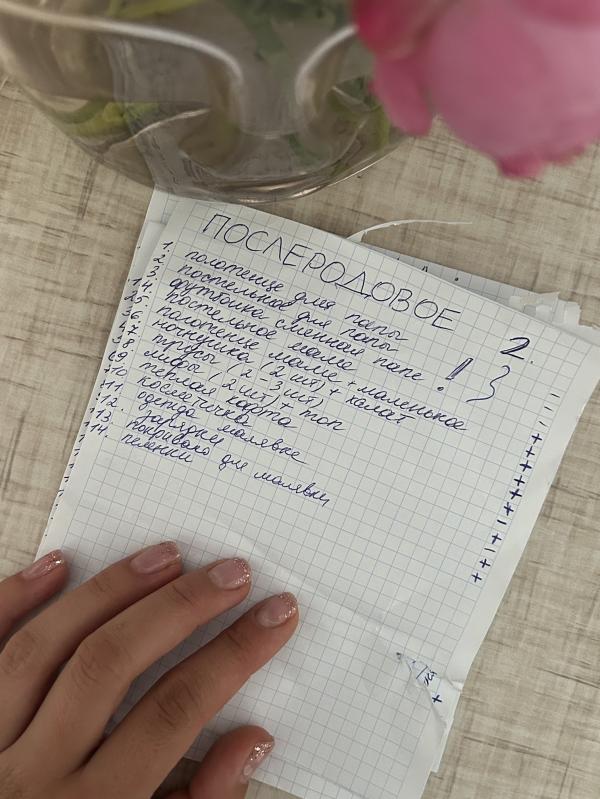 ПОСЛЕРОДОВОЕ 2.
1. полотенце для папы
2. постельное для папы
3. футболка сменная папе !
4. постельное маме
5. полотенце маме + маленькое
6. ночнушка (2 шт) + халат
7. трусы (2-3 шт)
8. лифы (2 шт) + топ
9. теплая
10. косметичка
11. одежда малявке
12. зарядки
13. покрывало для малявки
14. пеленки